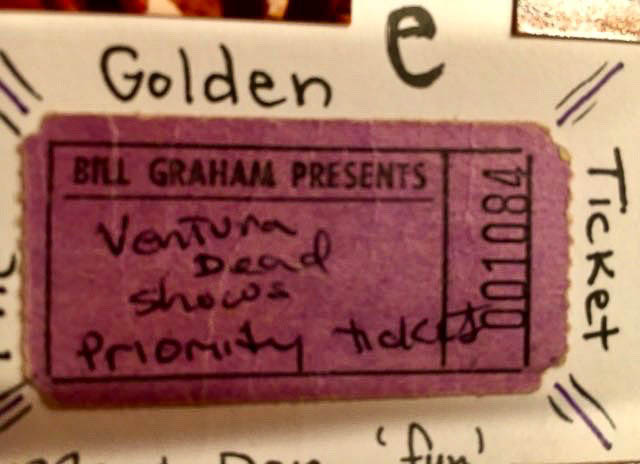 e
Golden
BILL GRAHAM PRESENTS
Ventura
Dead
Shows
Priority ticket
001084
Ticket
'fun'